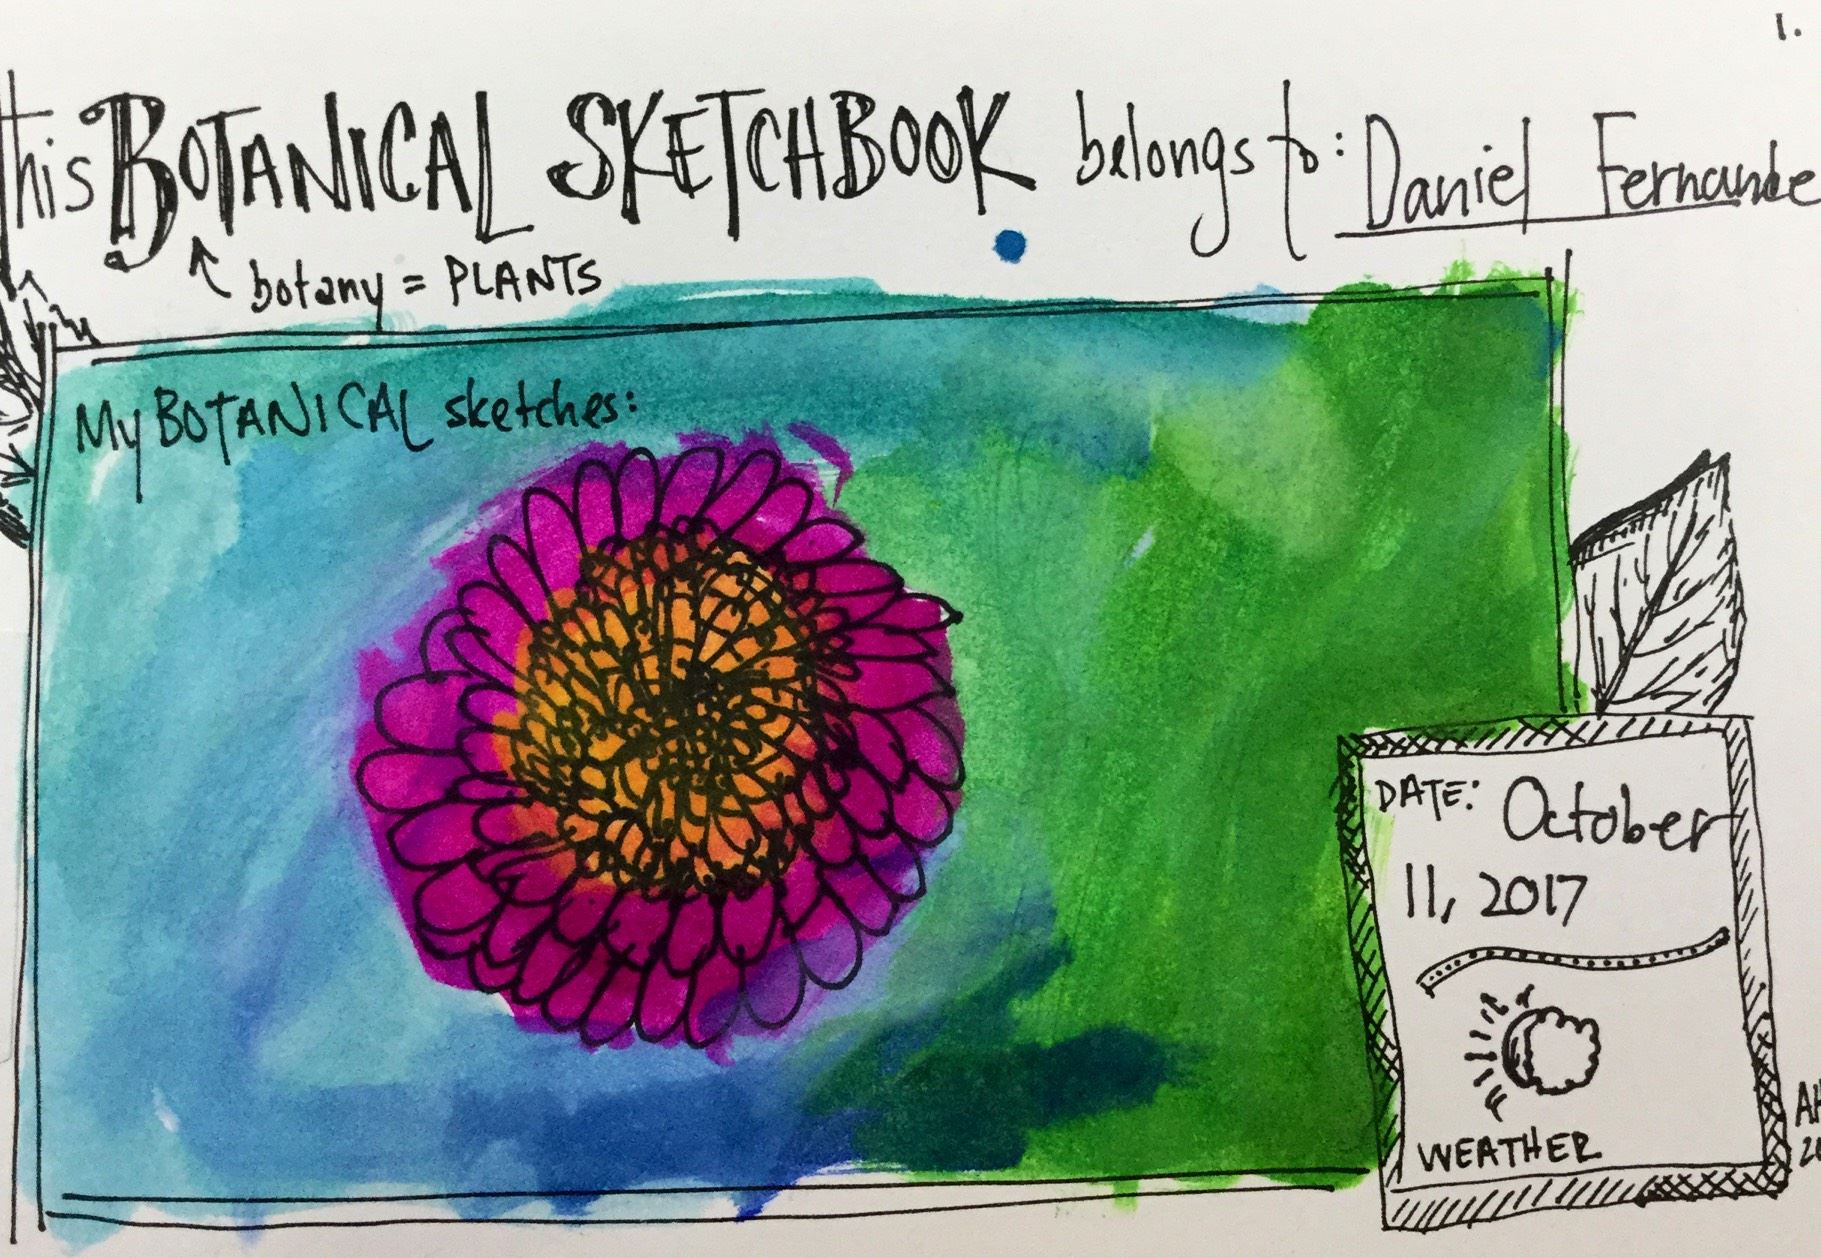 1.
this BOTANICAL SKETCHBOOK belongs to: Daniel Fernande
botany = PLANTS
My BOTANICAL sketches:
DATE: October
11, 2017
WEATHER